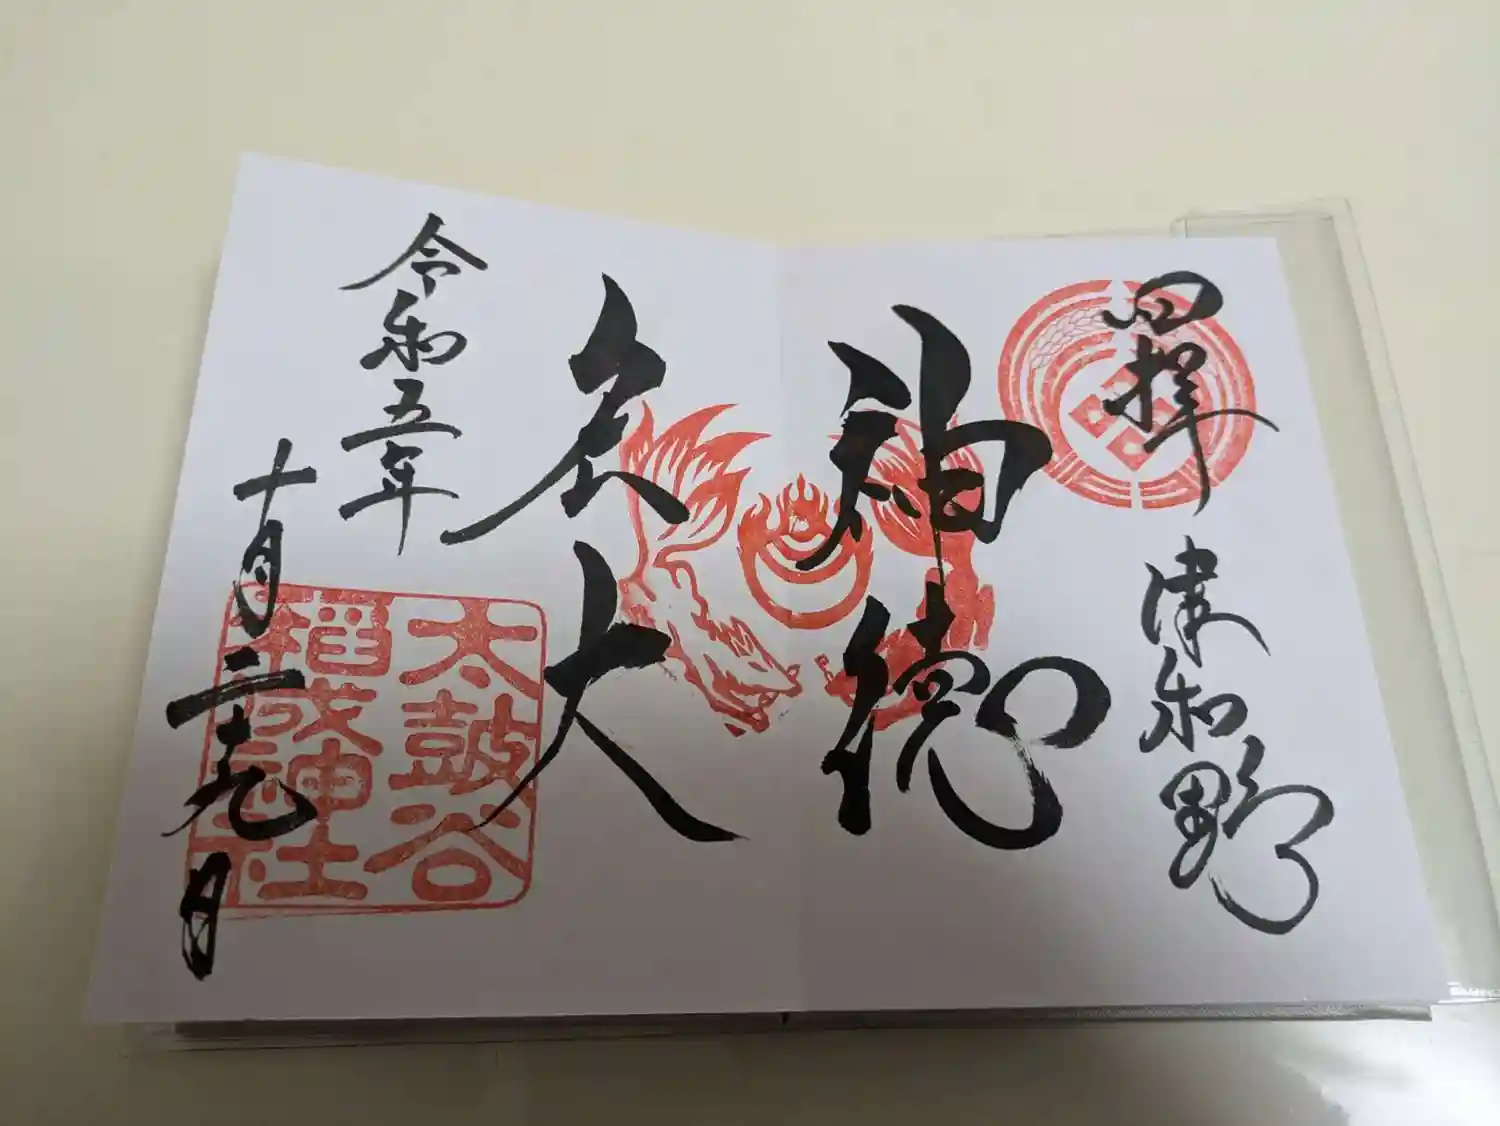 拝
津和野
神徳
大
令和五年
十月二十九日
太鼓谷
稲成神社